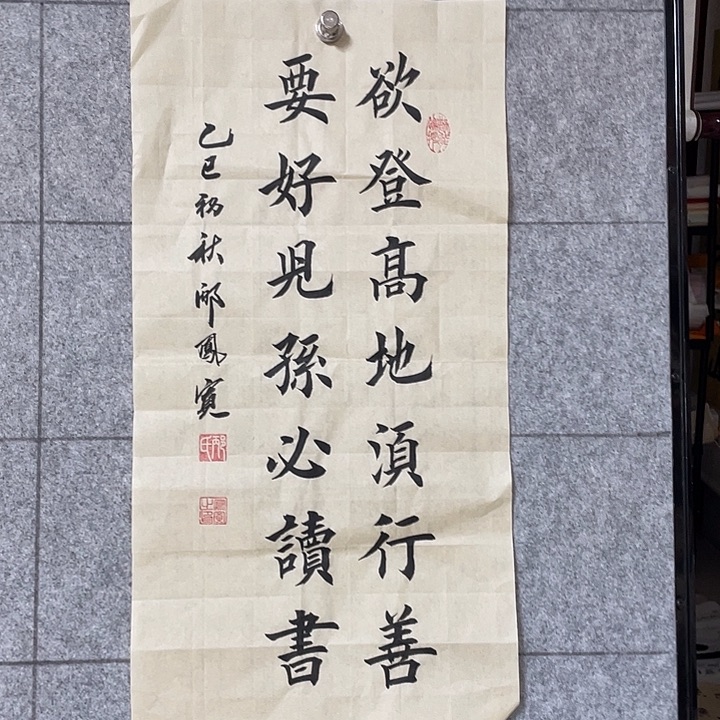 欲登高地須行善
要好兒孫必讀書
乙巳初秋邴鳳寬